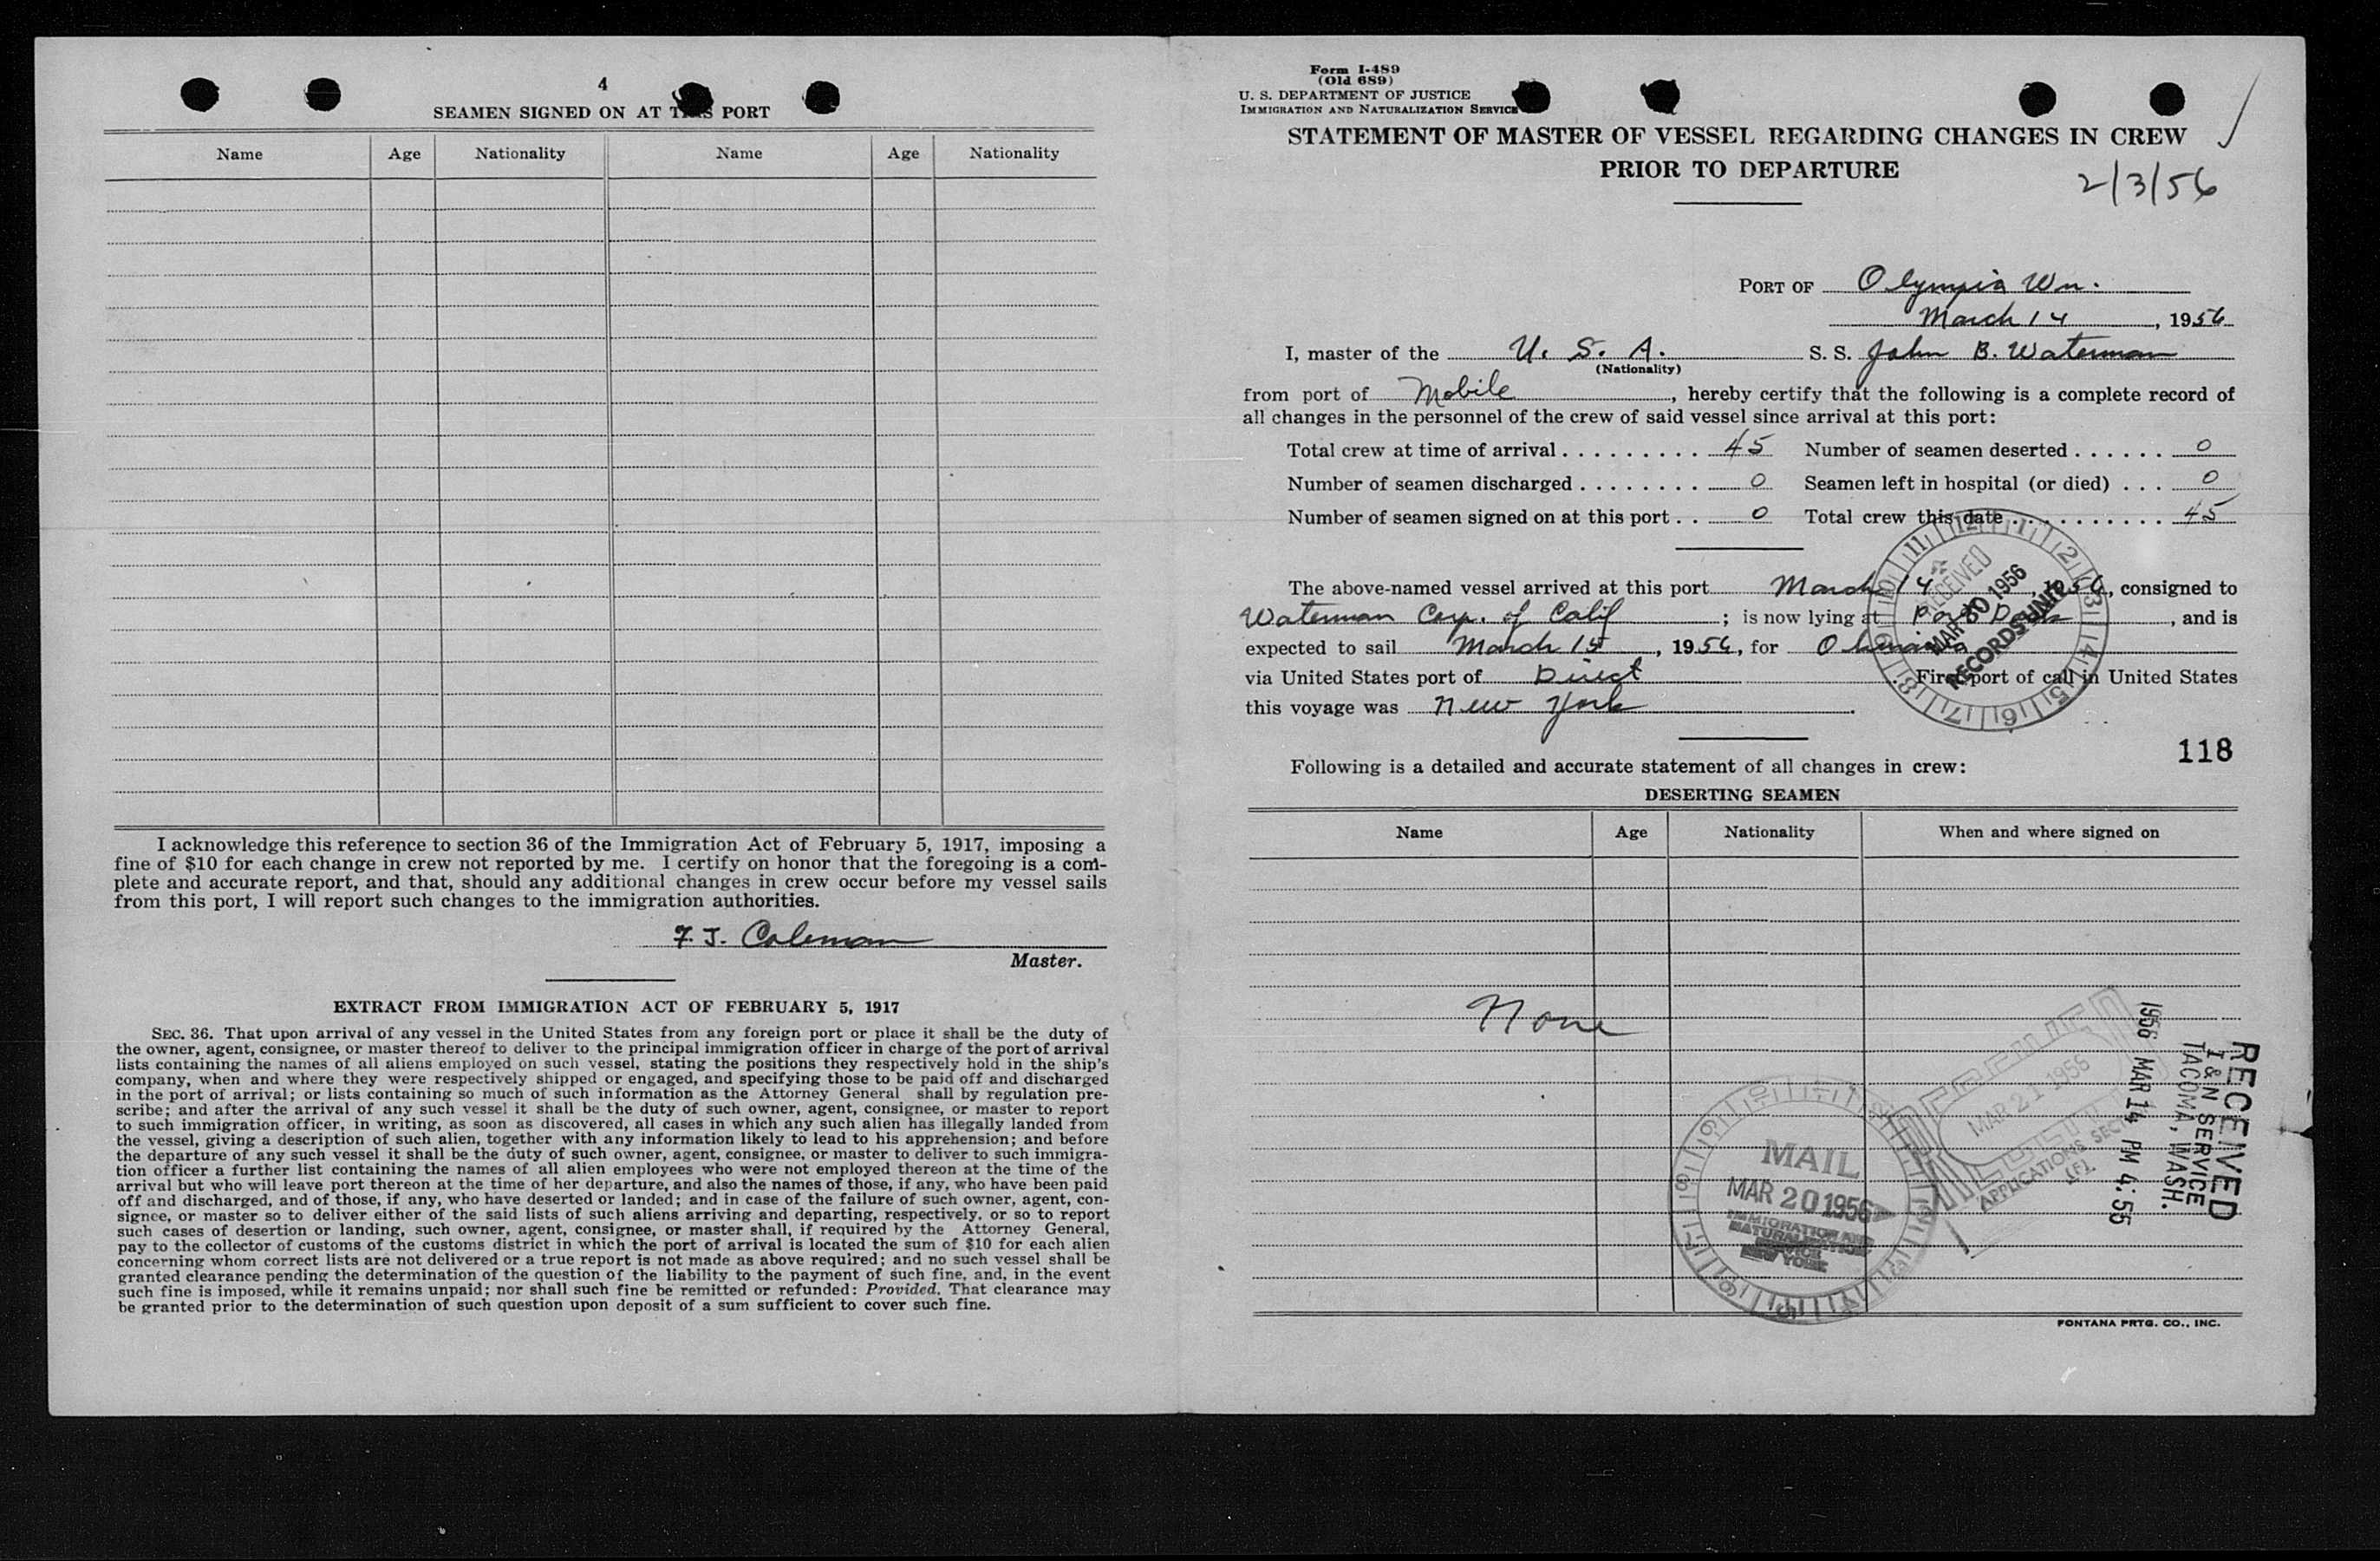 4
SEAMEN SIGNED ON AT THIS PORT
Name Age Nationality Name Age Nationality
I acknowledge this reference to section 36 of the Immigration Act of February 5, 1917, imposing a
fine of $10 for each change in crew not reported by me. I certify on honor that the foregoing is a com-
plete and accurate report, and that, should any additional changes in crew occur before my vessel sails
from this port, I will report such changes to the immigration authorities.
F. J. Coleman
Master.
EXTRACT FROM IMMIGRATION ACT OF FEBRUARY 5, 1917
SEC. 36. That upon arrival of any vessel in the United States from any foreign port or place it shall be the duty of
the owner, agent, consignee, or master thereof to deliver to the principal immigration officer in charge of the port of arrival
lists containing the names of all aliens employed on such vessel, stating the positions they respectively hold in the ship's
company, when and where they were respectively shipped or engaged, and specifying those to be paid off and discharged
in the port of arrival; or lists containing so much of such information as the Attorney General shall by regulation pre-
scribe; and after the arrival of any such vessel it shall be the duty of such owner, agent, consignee, or master to report
to such immigration officer, in writing, as soon as discovered, all cases in which any such alien has illegally landed from
the vessel, giving a description of such alien, together with any information likely to lead to his apprehension; and before
the departure of any such vessel it shall be the duty of such owner, agent, consignee, or master to deliver to such immigra-
tion officer a further list containing the names of all alien employees who were not employed thereon at the time of the
arrival but who will leave port thereon at the time of her departure, and also the names of those, if any, who have been paid
off and discharged, and of those, if any, who have deserted or landed; and in case of the failure of such owner, agent, con-
signee, or master so to deliver either of the said lists of such aliens arriving and departing, respectively, or so to report
such cases of desertion or landing, such owner, agent, consignee, or master shall, if required by the Attorney General,
pay to the collector of customs of the customs district in which the port of arrival is located the sum of $10 for each alien
concerning whom correct lists are not delivered or a true report is not made as above required; and no such vessel shall be
granted clearance pending the determination of the question of the liability to the payment of such fine, and, in the event
such fine is imposed, while it remains unpaid; nor shall such fine be remitted or refunded: Provided, That clearance may
be granted prior to the determination of such question upon deposit of a sum sufficient to cover such fine.
Form I-489
(Old 689)
U. S. DEPARTMENT OF JUSTICE
IMMIGRATION AND NATURALIZATION SERVICE
STATEMENT OF MASTER OF VESSEL REGARDING CHANGES IN CREW
PRIOR TO DEPARTURE
2/3/56
PORT OF Olympia Wn.
March 14, 1956
I, master of the U. S. A. S. S. John B. Waterman
(Nationality)
from port of Mobile, hereby certify that the following is a complete record of
all changes in the personnel of the crew of said vessel since arrival at this port:
Total crew at time of arrival 45 Number of seamen deserted 0
Number of seamen discharged 0 Seamen left in hospital (or died) 0
Number of seamen signed on at this port 0 Total crew this date 45
The above-named vessel arrived at this port March 14, 1956, consigned to
Waterman Corp. of Calif; is now lying at Port Dock, and is
expected to sail March 15, 1956, for
via United States port of Direct. First port of call in United States
this voyage was New York.
RECEIVED
MAR 20 1956
RECORDS UNIT
118
Following is a detailed and accurate statement of all changes in crew:
DESERTING SEAMEN
Name Age Nationality When and where signed on
None
MAIL
MAR 20 1956
IMMIGRATION AND
NATURALIZATION
SERVICE
NEW YORK
MAR 21 1956
APPLICATIONS SECT.
(F)
RECEIVED
I & N SERVICE
TACOMA, WASH.
1956 MAR 14 PM 4:55
FONTANA PRTG. CO., INC.